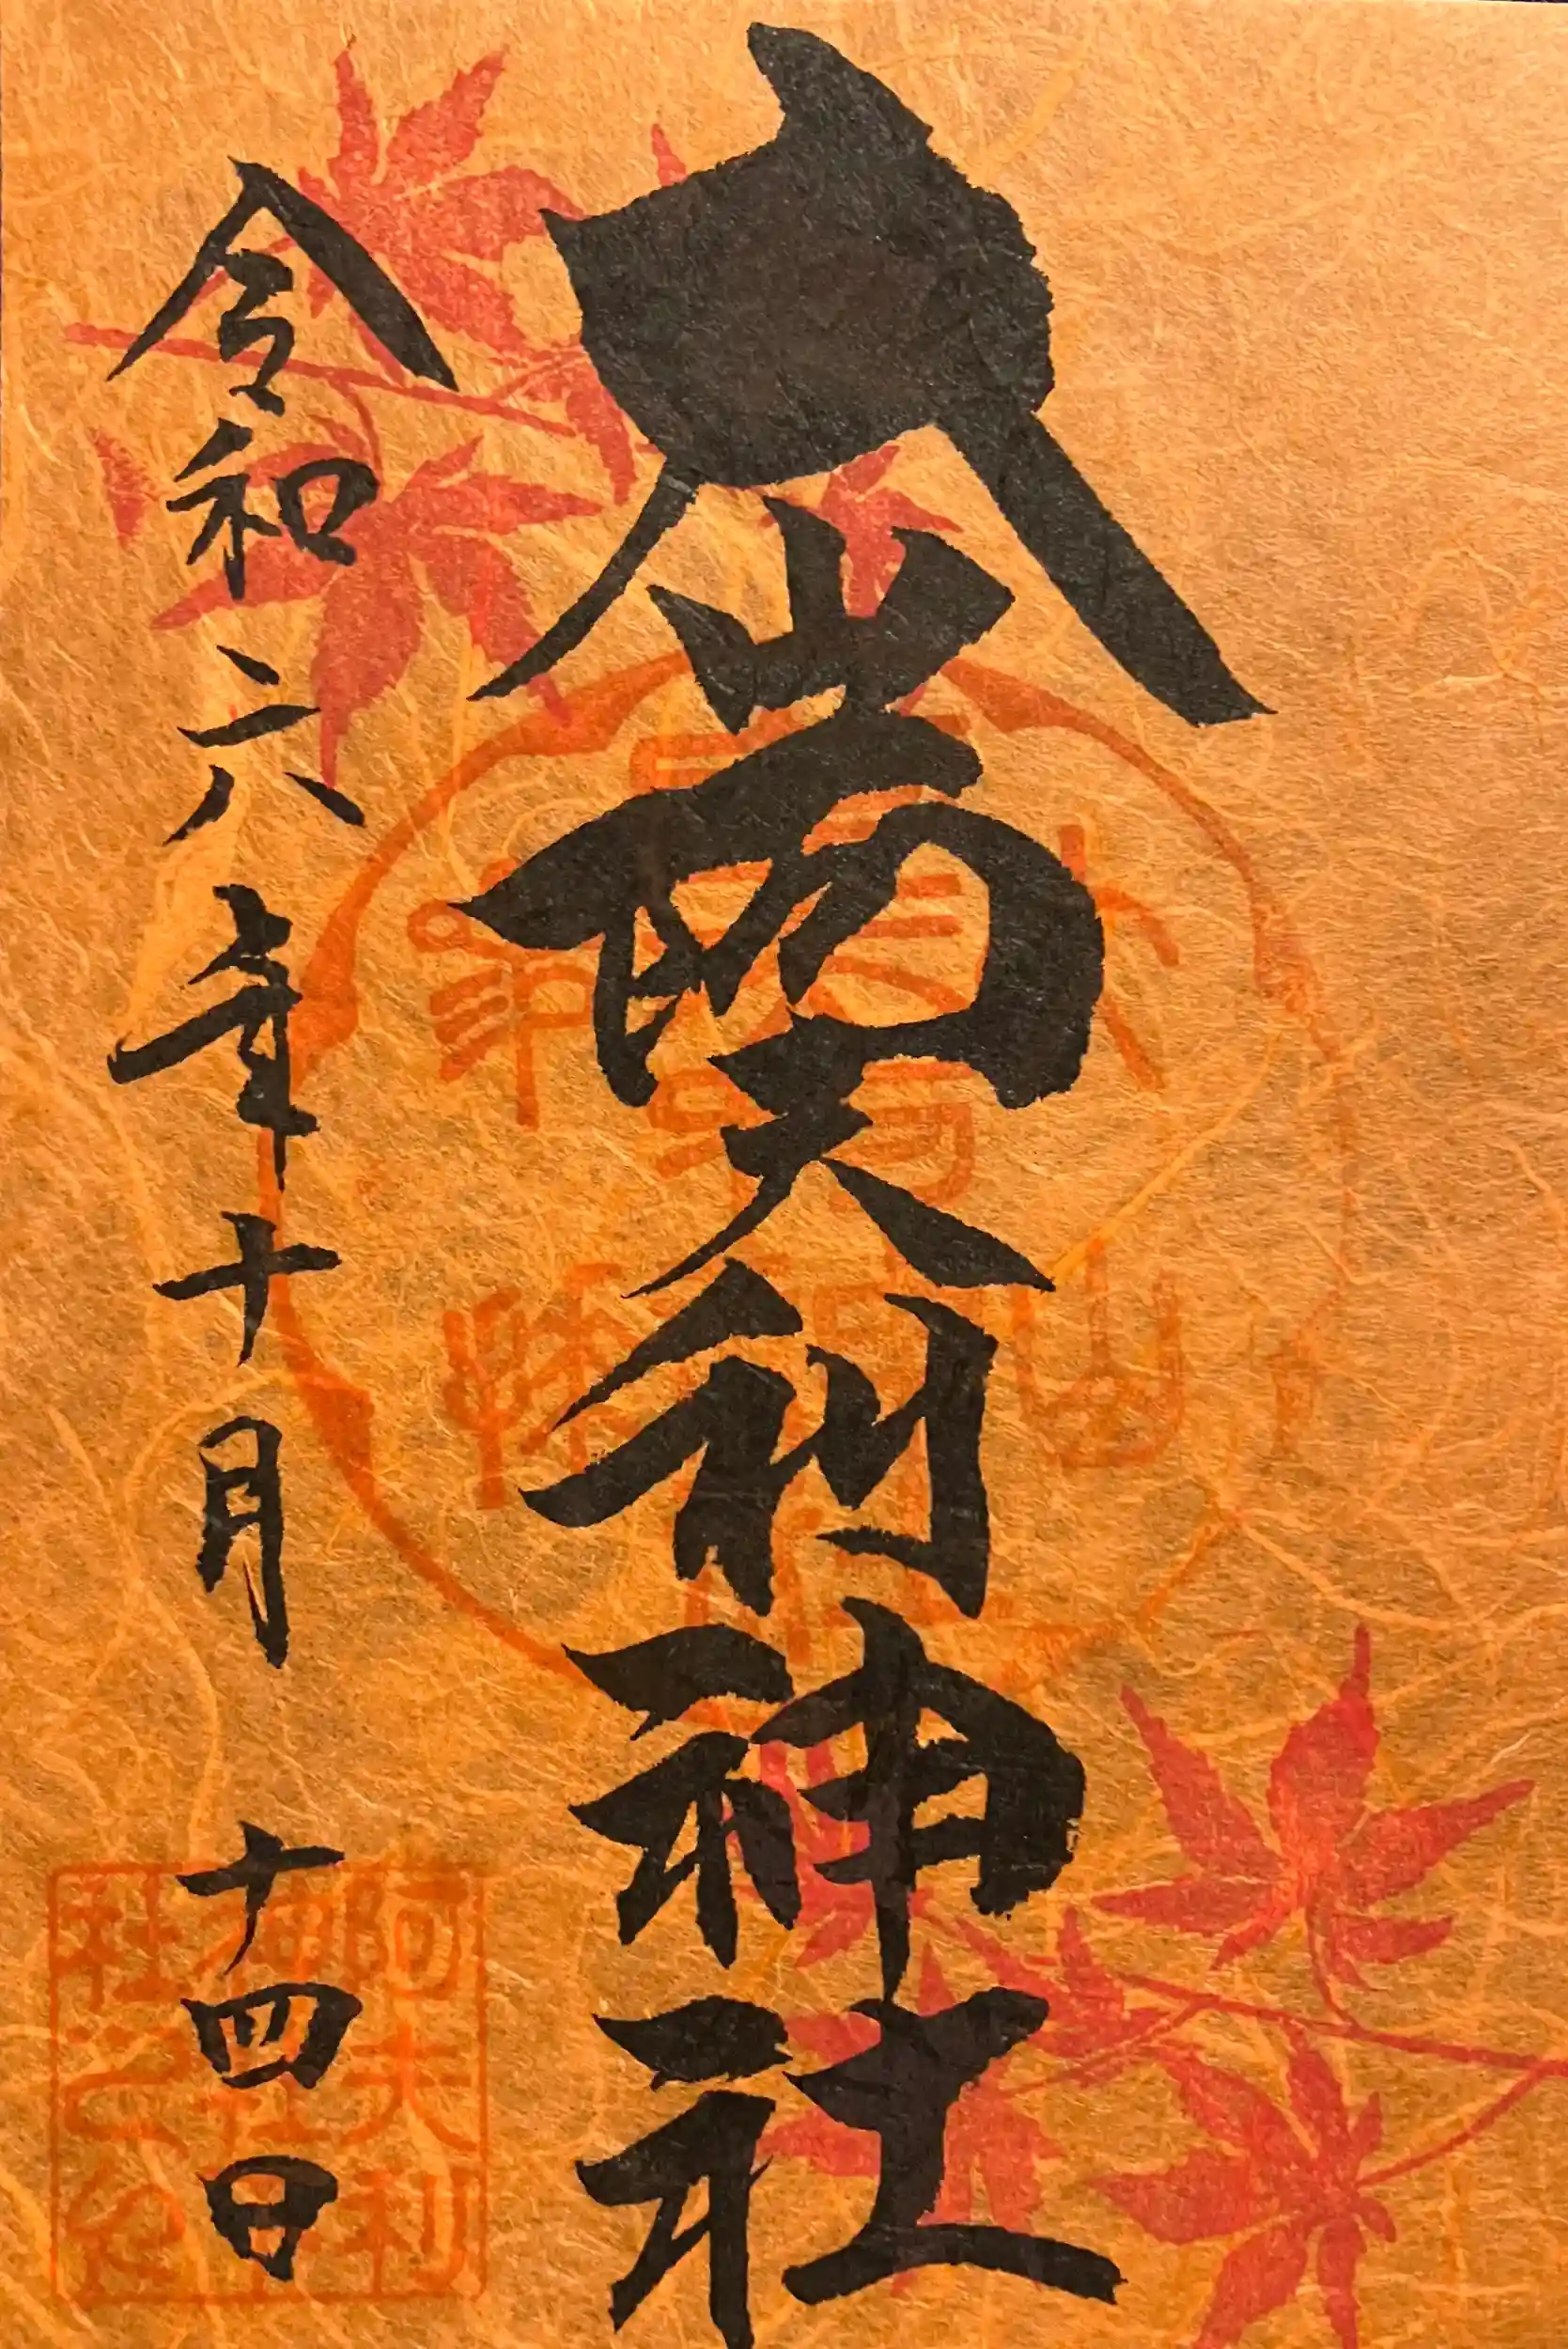 大山阿夫利神社
令和六年十月十四日
阿夫利
社之印